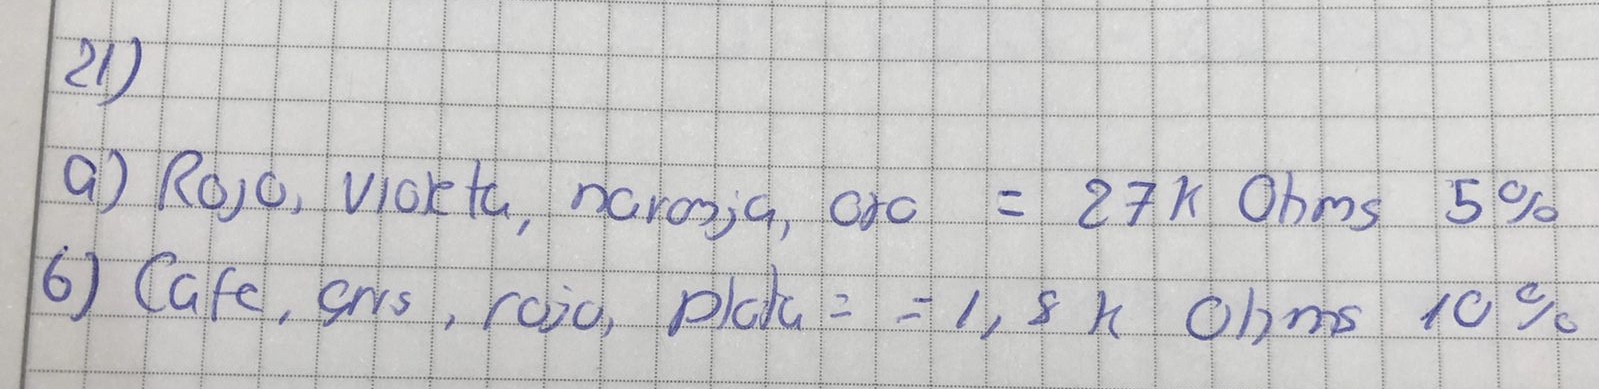 21)
a) Rojo, violeta, naranja, oro = 27k Ohms 5%
b) Cafe, gris, rojo, plata = = 1,8 k Ohms 10%